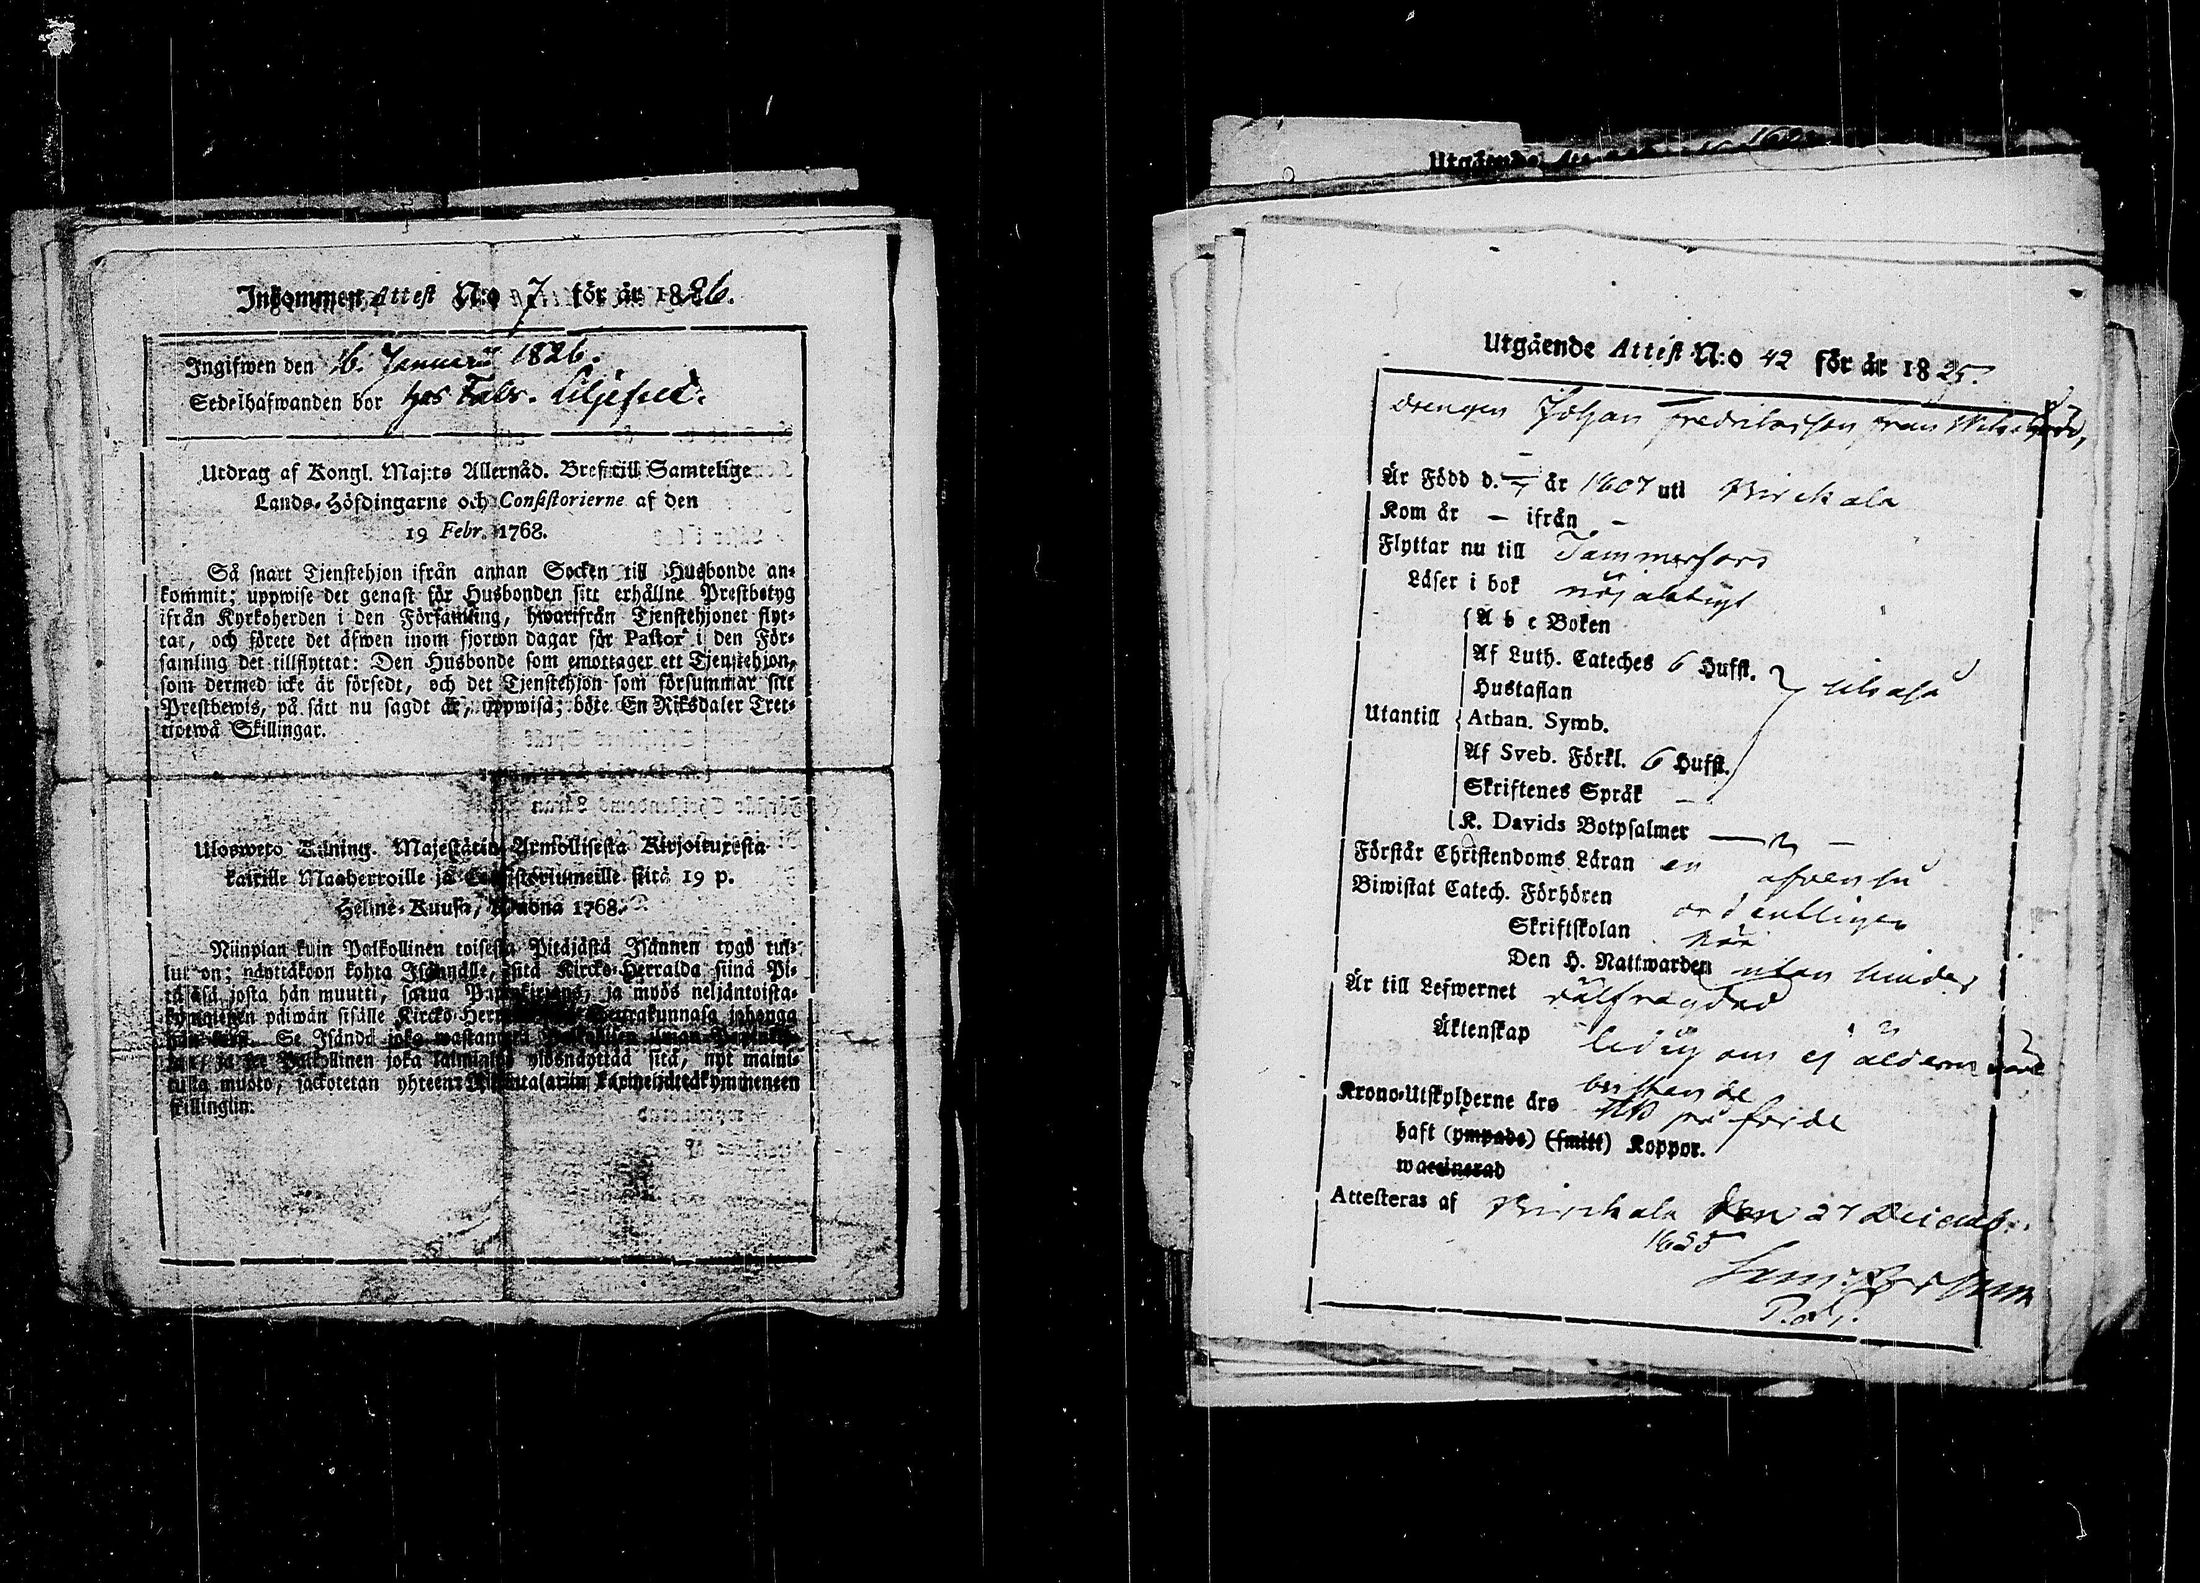 Inkommen Attest N:o 7 för år 1826.
Ingifwen den 16. Januarii 1826.
Sedelhafwanden bor hos Fabr. Liljefeld.
Utdrag af Kongl. Maj:ts Allernåd. Bref till Samtelige
Lands-Höfdingarne och Consistorierne af den
19 Febr. 1768.
Så snart Tjenstehjon ifrån annan Socken till Husbonde an-
kommit; uppwise det genast för Husbonden sitt erhållne Prestbetyg
ifrån Kyrkoherden i den Församling, hwarifrån Tjenstehjonet flyt-
tat, och förete det äfwen inom fjorton dagar för Pastor i den För-
samling det tillflyttat: Den Husbonde som emottager ett Tjenstehjon,
som dermed icke är försedt, och det Tjenstehjon som försummar sitt
Prestbewis, på sätt nu sagdt är, uppwisa; böte En Riksdaler Tret-
tiotwå Skillingar.
Uloswето Kuning. Majestätin Armollisesta Kirjoituxesta
kaikille Maaherroille ja Consistoriumeille siitä 19 p.
Helme-Kuusa, Wuona 1768.
Niinpian kuin Palkollinen toisesta Pitäjästä Isännen tygö tul-
lut on; näyttäköön kohta Isännälle, sitä Kircko-Herralda siinä Pi-
täjäsä josta hän muutti, saatua Papinkirjans, ja myös neljäntoista-
kymmenen päiwän sisälle Kircko-Herralle Seurakunnasa johonga
hän tuli. Se Isändä joka wastanotta Palkollisen ilman
ja se Palkollinen joka laiminlyö ylösnäyttää sitä, nyt maini-
tulla muoto, sackotetan yhteen Riikintalariin kaxineljättäkymmeneen
skillingiin.
Utgående
Utgående Attest N:o 42 för år 1825.
Drengen Johan Fredriksson från
Är Född d. – år 1807 uti Birckala
Kom år – ifrån –
Flyttar nu till Tammerfors
Läser i bok nöjaktigt
A b c Boken
Af Luth. Cateches 6 Hufst.
Hustaflan
Utantill Athan. Symb.
Af Sveb. Förkl. 6 Hufst.
Skriftenes Språk –
K. Davids Botpsalmer –
Förstår Christendoms Läran
Biwistat Catech. Förhören ordentligen
Skriftskolan
Den H. Nattwarden utan hinder
Är till Lefwernet wälfrägdad
Äktenskap ledig om ej ålderen wore
bristande
Krono-Utskylderne äro
haft (ympade) (smitt) Koppor.
waccinerad
Attesteras af Birckala den 27 Decemb.
1825